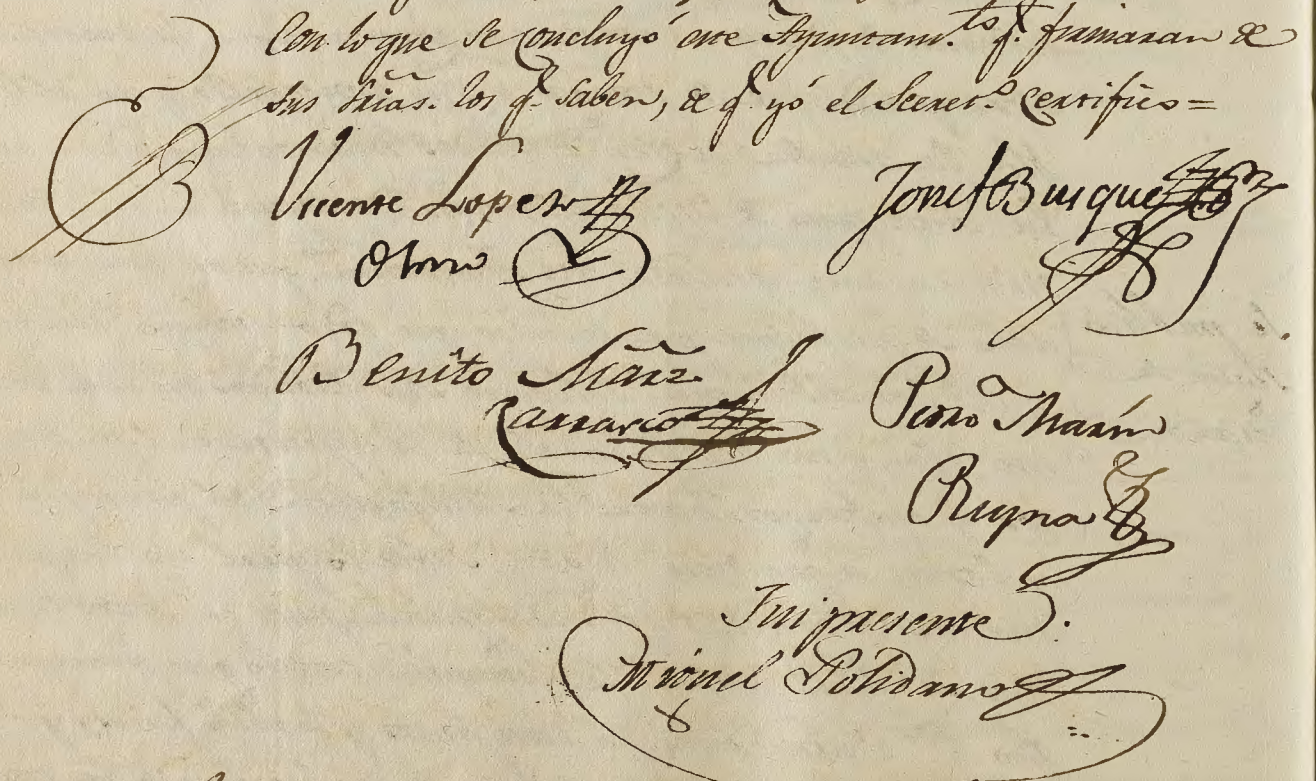 Con lo que se concluyó este Ayuntam.to q.e firmaran de
sus Srias. los q.e Saben, de q.e yó el Secret.o certifico=
Vicente Lopez
Josef Busque
Benito Mãrz
Carrasco
Pedro Marín
Reyna
Fui presente
Miguel Polidano